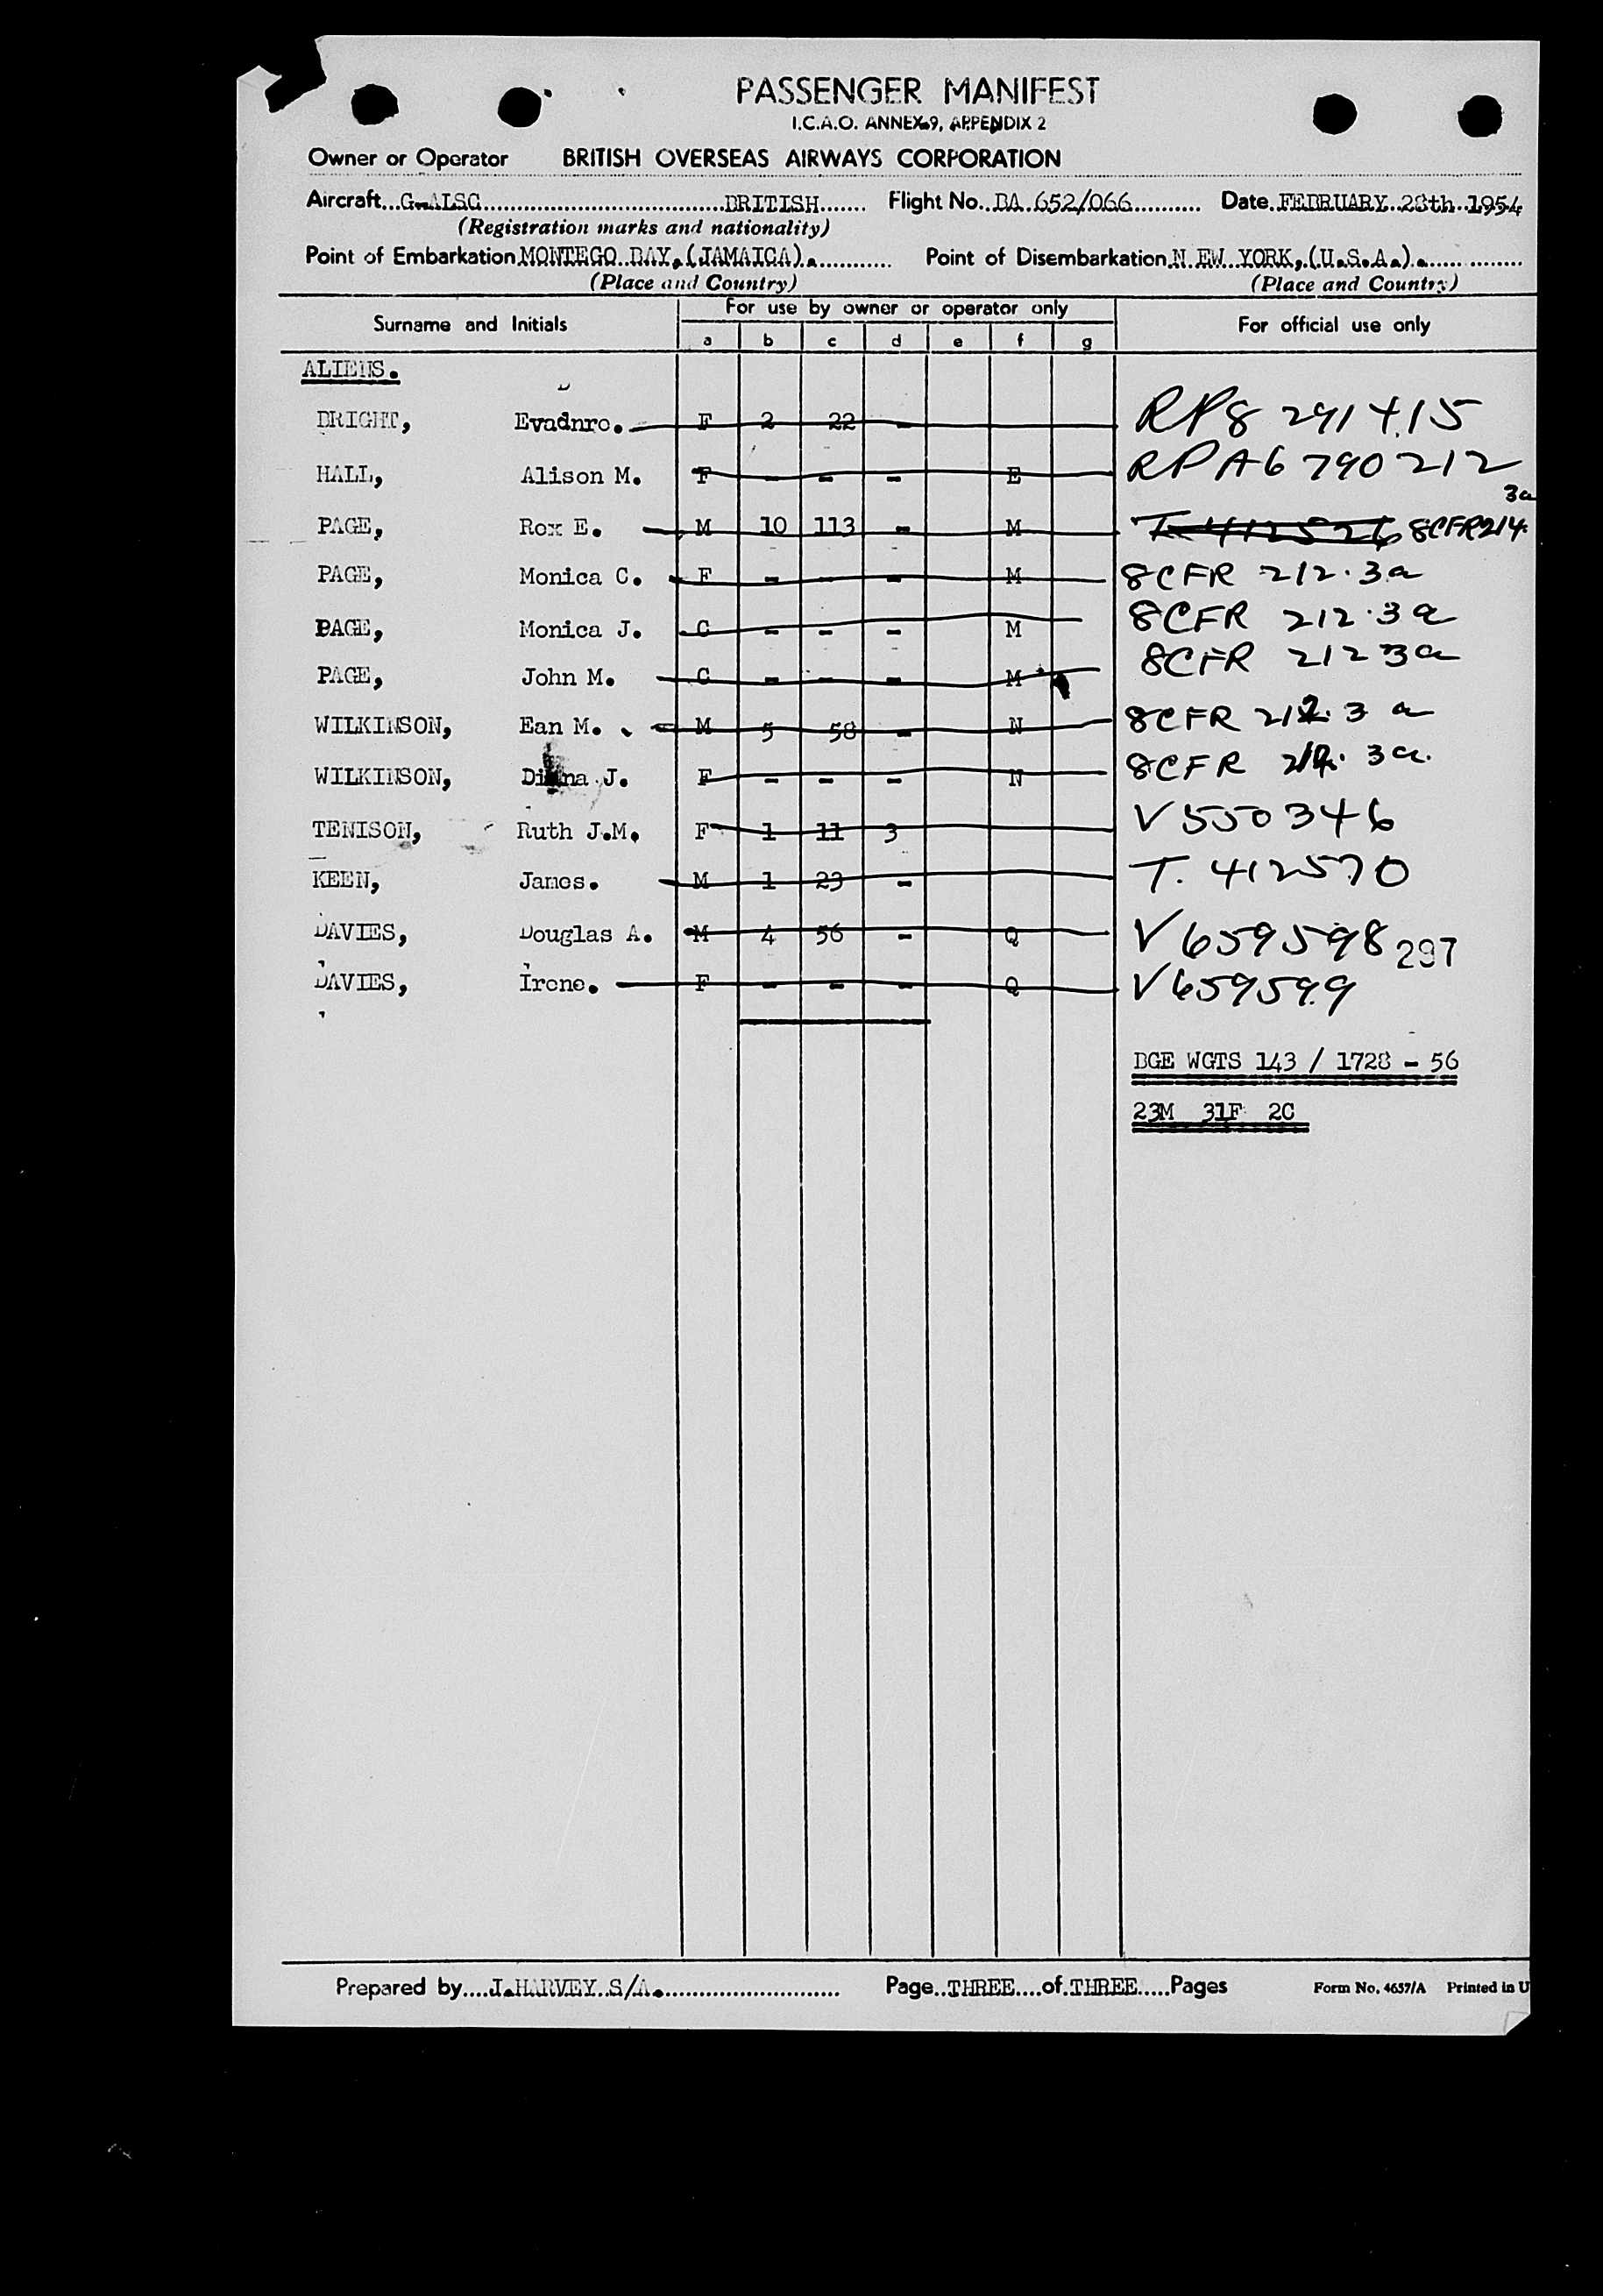 PASSENGER MANIFEST
I.C.A.O. ANNEX 9, APPENDIX 2
Owner or Operator BRITISH OVERSEAS AIRWAYS CORPORATION
Aircraft...G-ALSC...BRITISH... Flight No...BA 652/066... Date.FEBRUARY 28th 1954
(Registration marks and nationality)
Point of Embarkation MONTEGO BAY,(JAMAICA).... Point of Disembarkation N EW YORK,(U.S.A.)....
(Place and Country) (Place and Country)
Surname and Initials For use by owner or operator only For official use only
a b c d e f g
ALIENS.
BRIGHT, Evadnre. F 2 22 - RP8 291415
HALL, Alison M. F - - - E RPA6 790212
3a
PAGE, Rox E. M 10 113 - M T 412526 8CFR214.
PAGE, Monica C. F - - - M 8CFR 212.3a
PAGE, Monica J. C - - - M 8CFR 212.3a
PAGE, John M. C - - - M 8CFR 212 3a
WILKINSON, Ean M. M 5 58 - N 8CFR 212.3 a
WILKINSON, Diana J. F - - - N 8CFR 212. 3a.
TENISON, Ruth J.M. F 1 11 3 V550346
KEEN, James. M 1 23 - T. 412570
DAVIES, Douglas A. M 4 56 - Q V659598 297
DAVIES, Irene. F - - - Q V659599
BGE WGTS 143 / 1728 - 56
23M 31F 2C
Prepared by....J.HARVEY S/A.... Page..THREE...of.THREE....Pages Form No. 4657/A Printed in U